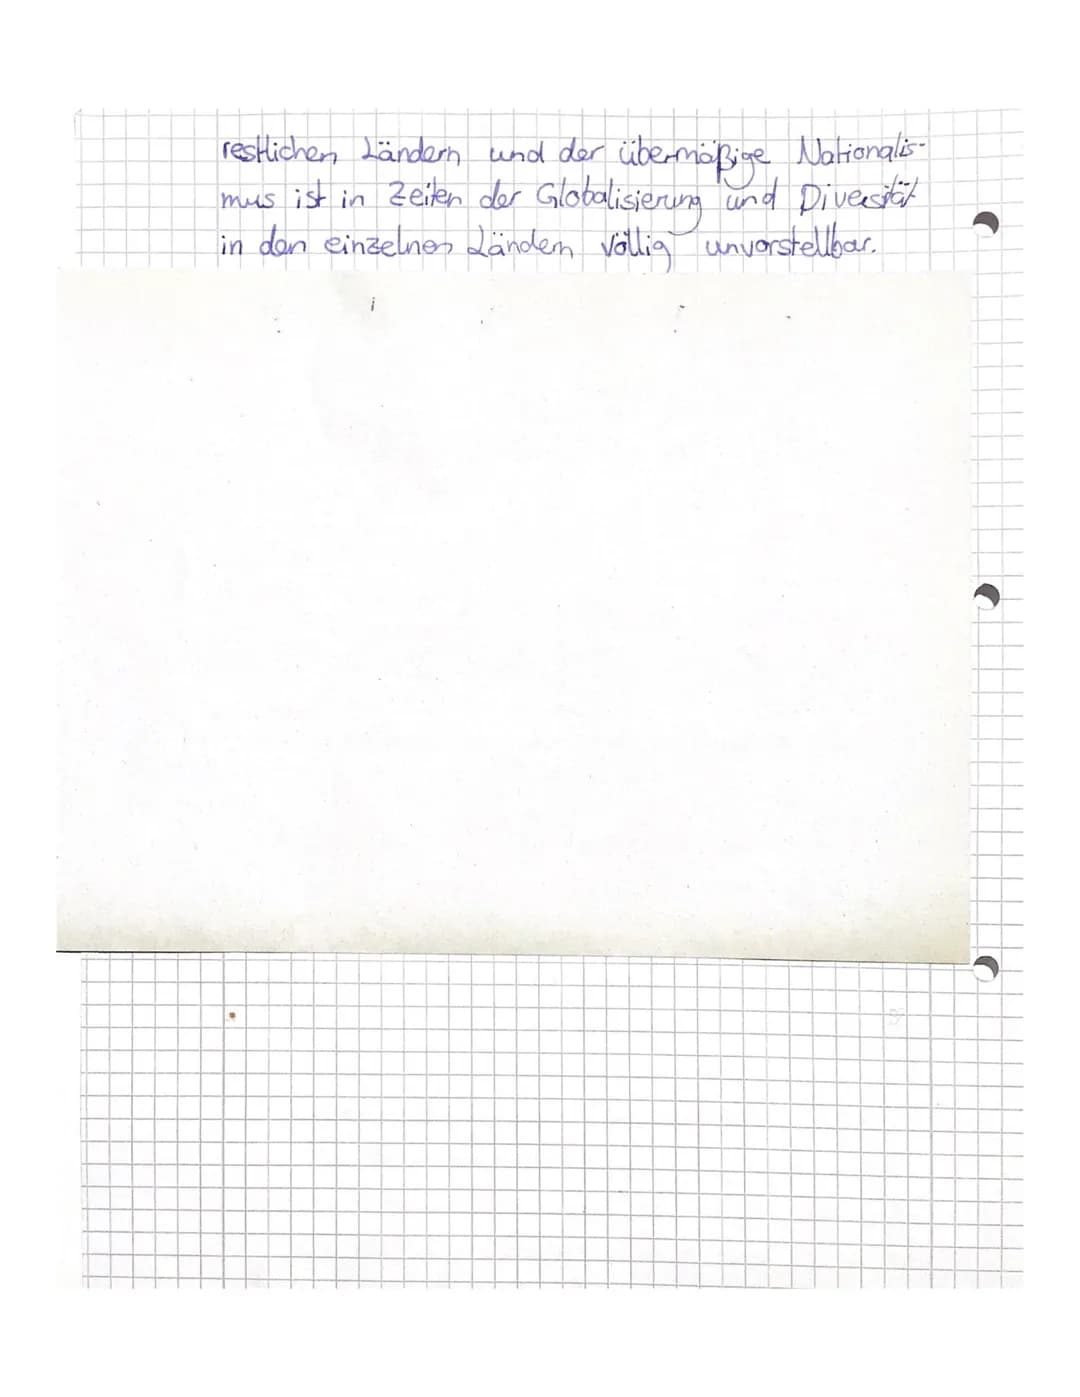 restlichen Ländern und der übermäßige Nationalis-
mus ist in Zeiten der Globalisierung und Diversität
in den einzelnen Ländern völlig unvorstellbar.